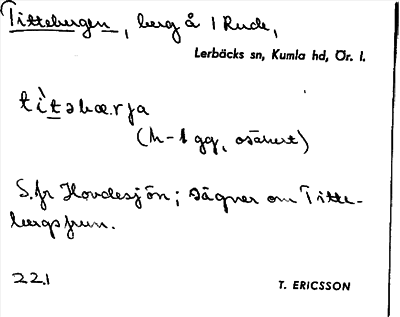 Titteberget, berg å 1 Rude,
Lerbäcks sn, Kumla hd, Ör. l.
(h-1 gg, osäkert)
S. fr Hovdesjön; sägner om Titte-
bergsfrun.
221
T. ERICSSON